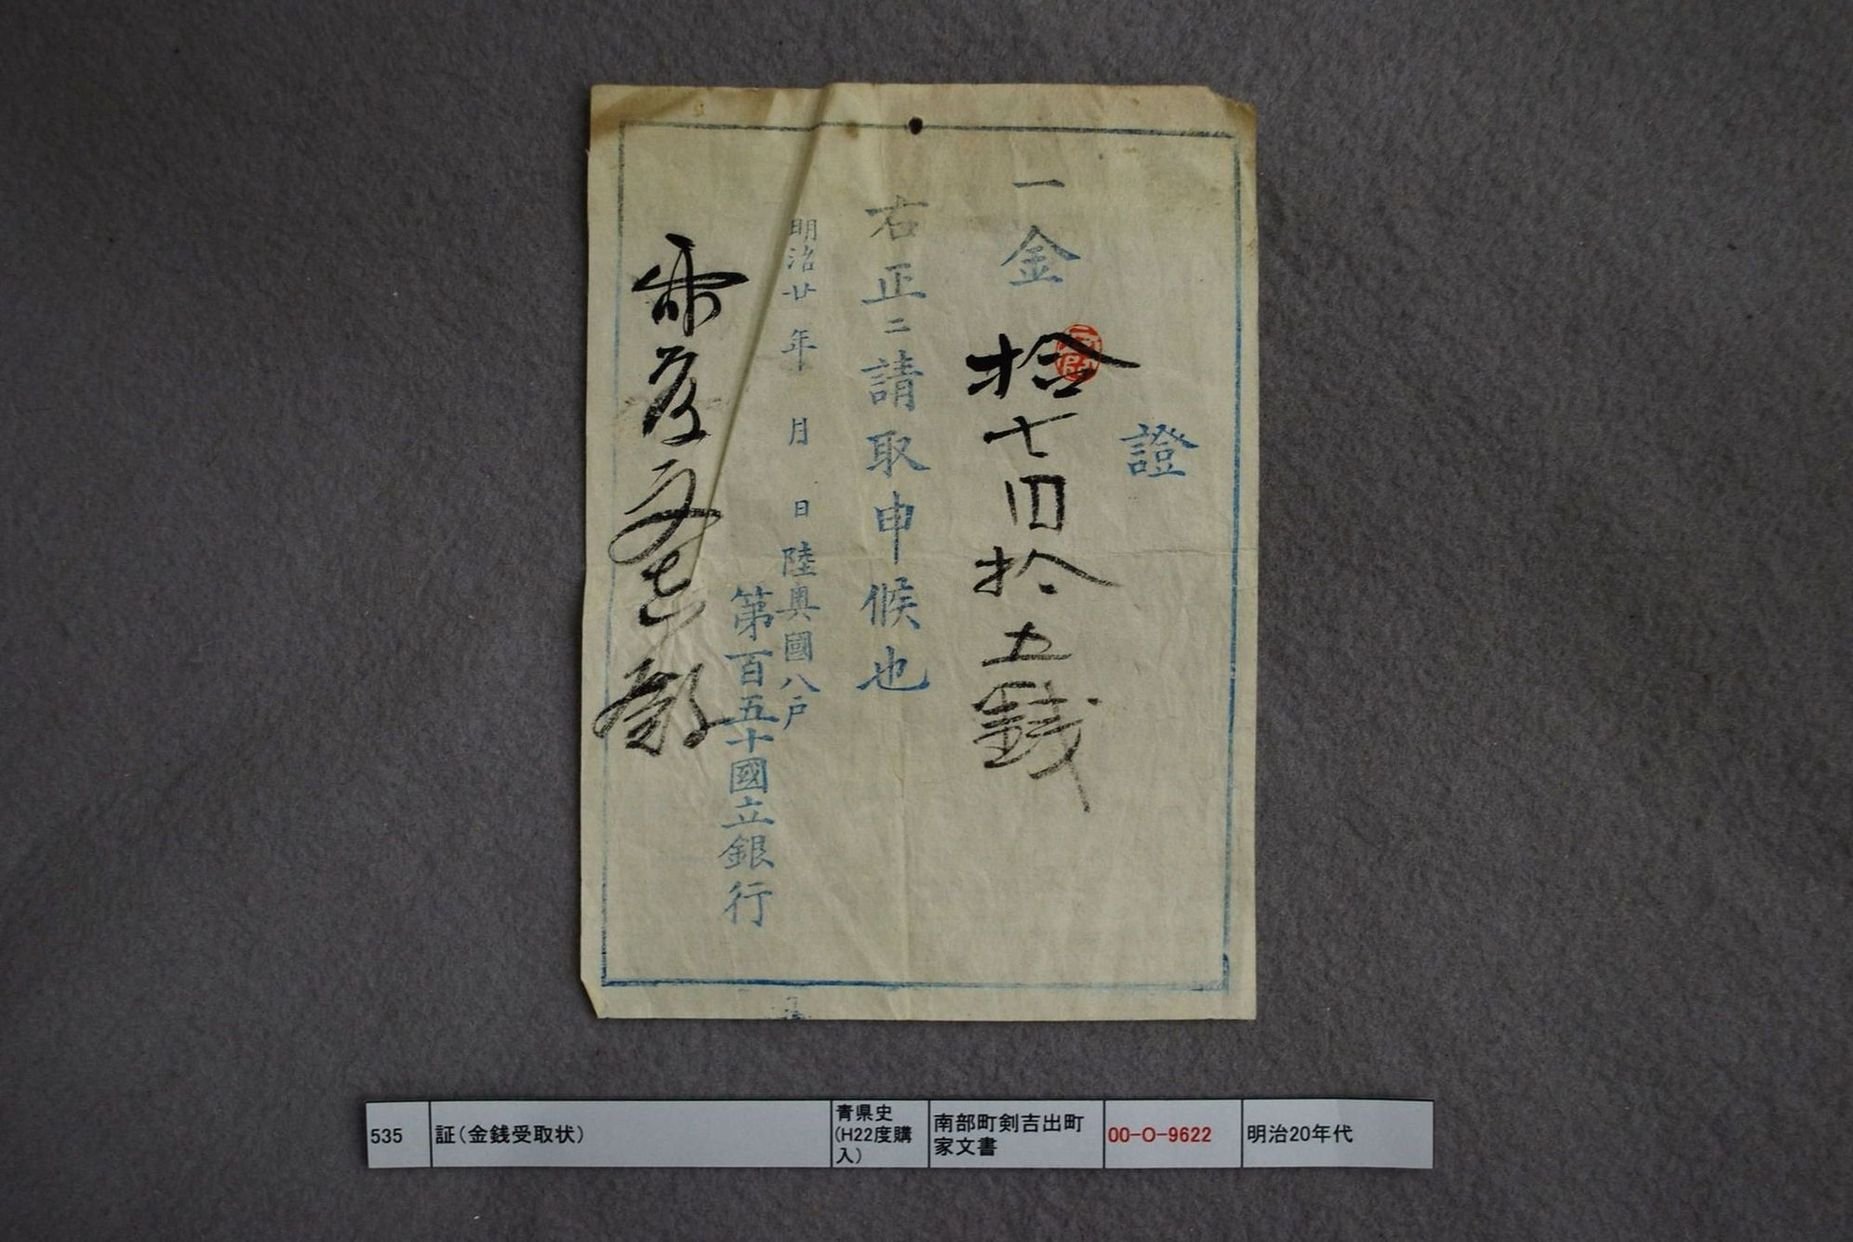 證
一金 拾七円拾五銭
右正ニ請取申候也
明治廿年 月 日 陸奥國八戸
第百五十國立銀行
535
証(金銭受取状)
青県史
(H22度購
入)
南部町剣吉出町
家文書
00-O-9622
明治20年代